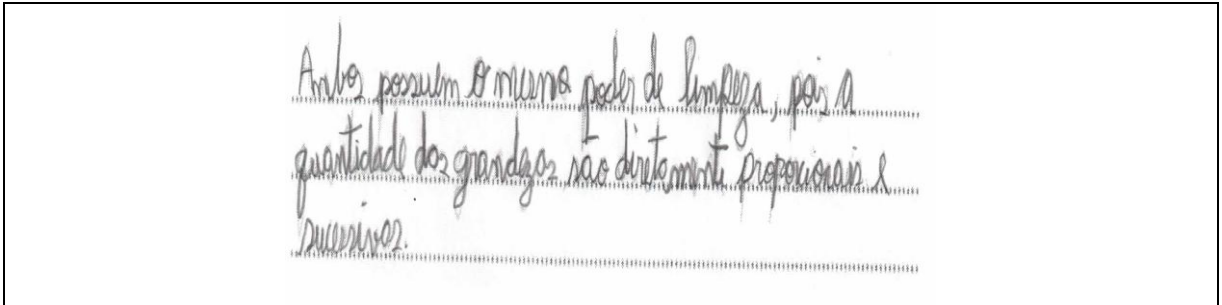 Ambos possuem o mesmo poder de limpeza, pois a
quantidade das grandezas são diretamente proporcionais e
sucessivas.